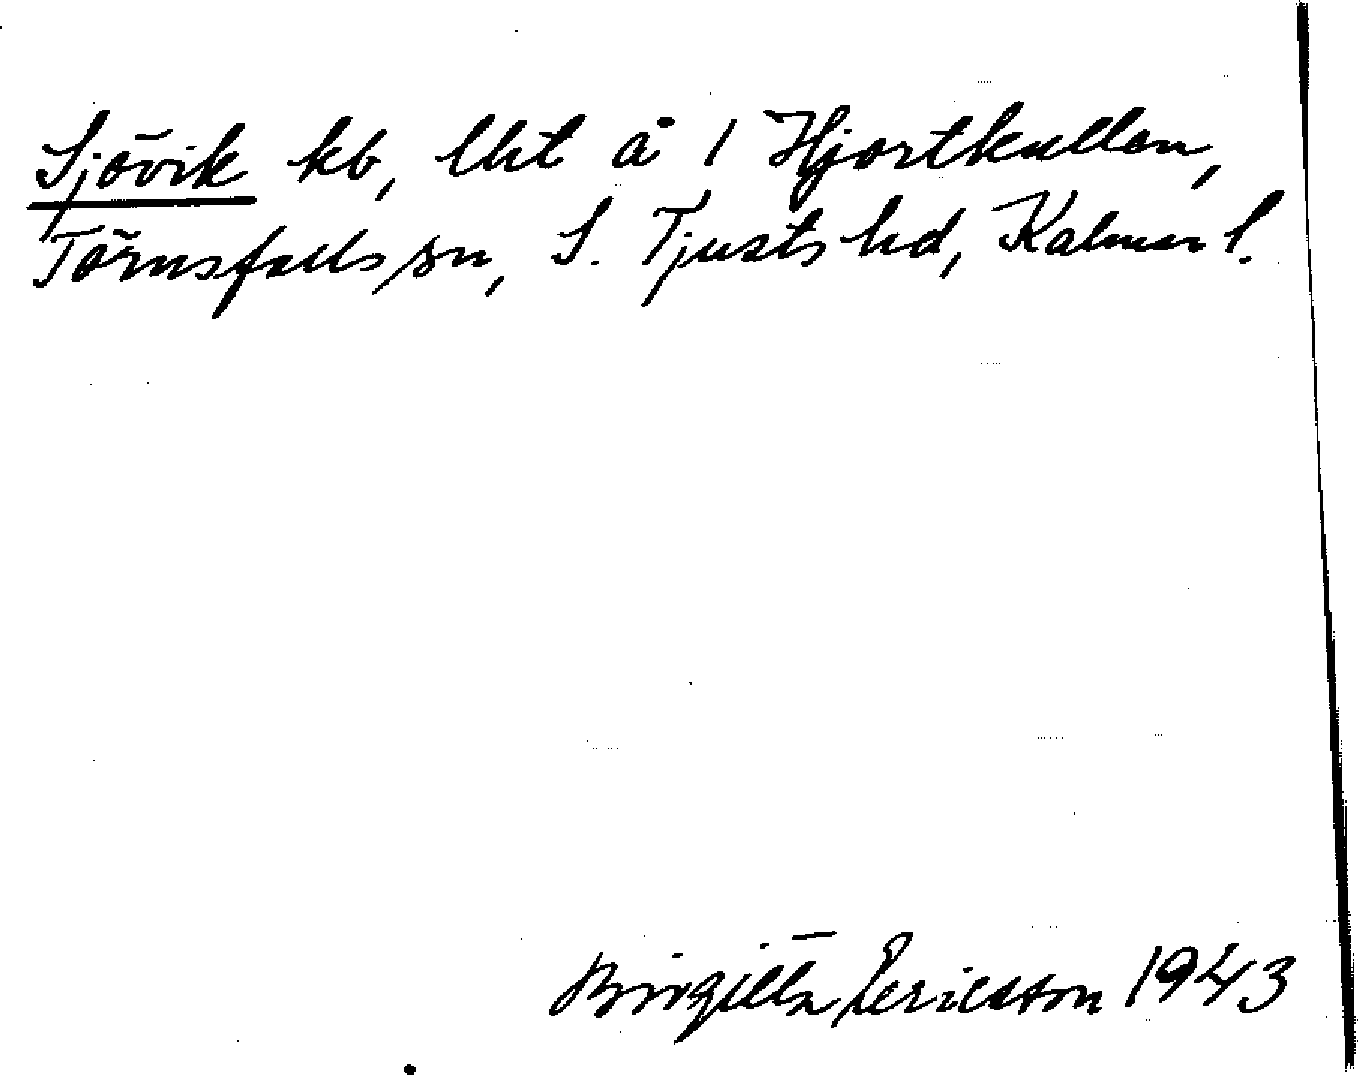 Sjövik kb, lht å 1 Hjortkullen,
Törnsfalls sn, S. Tjusts hd, Kalmar l.
Birgitta Ericsson 1943